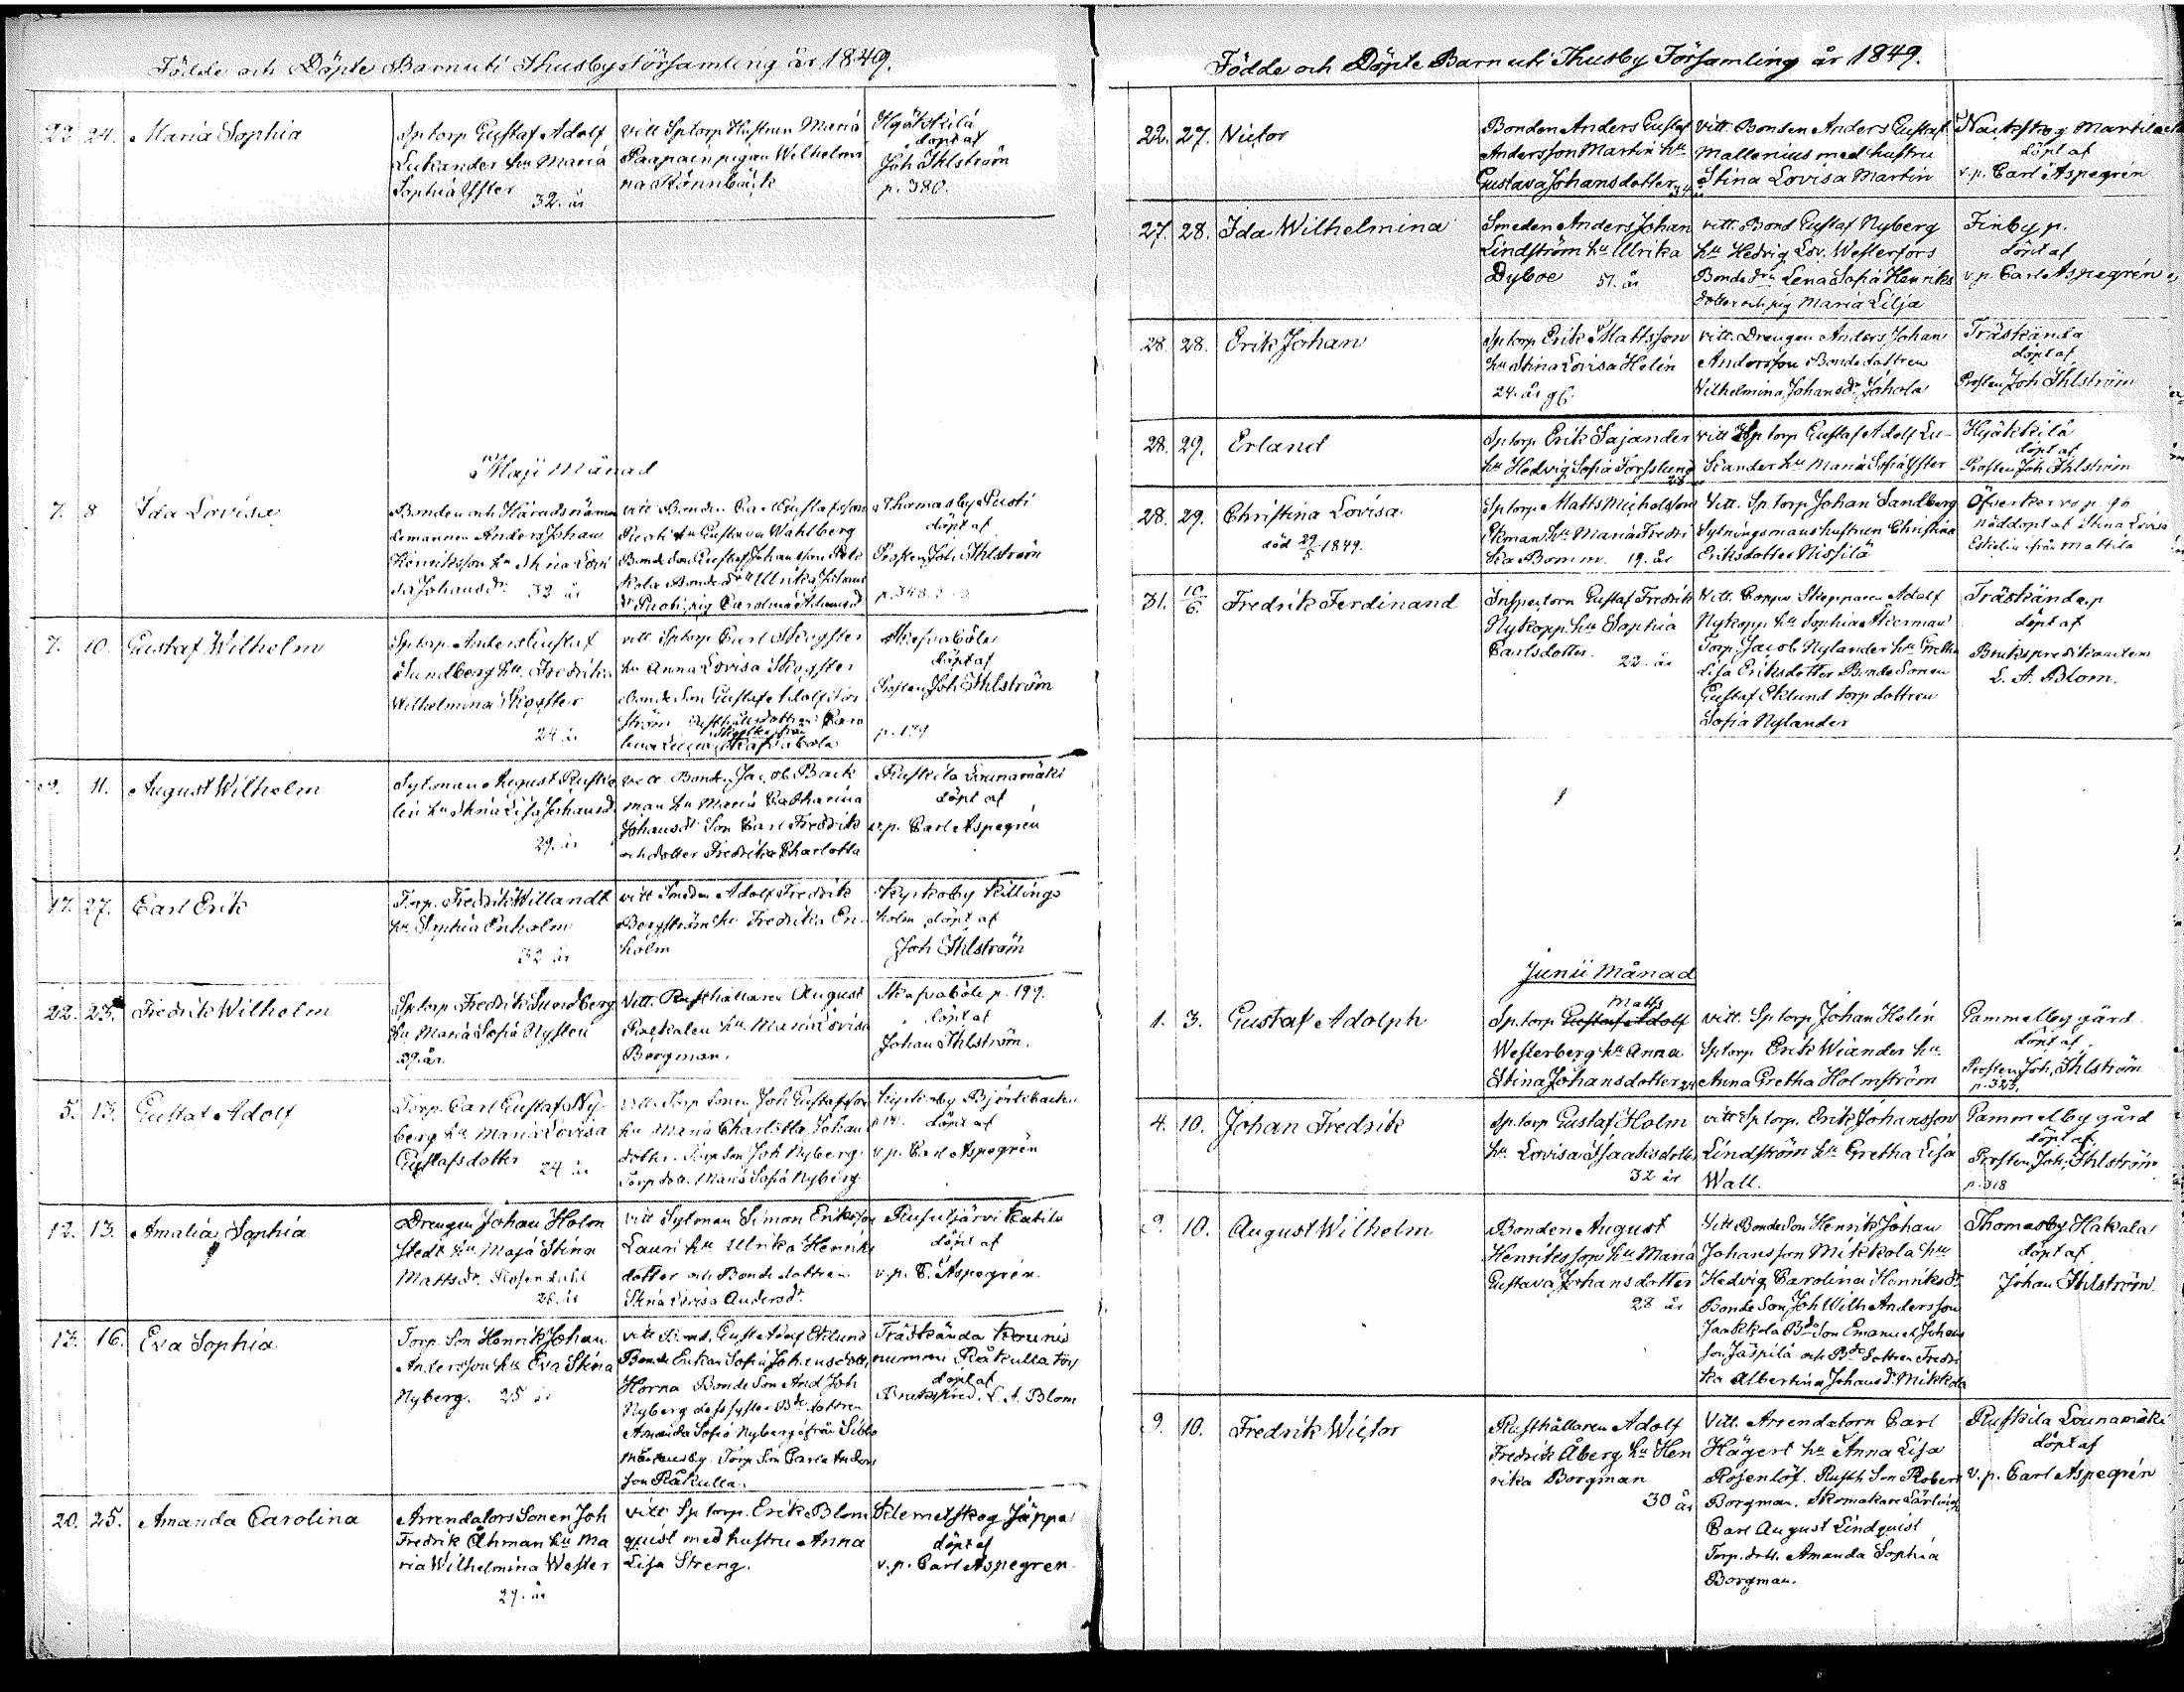 Födde och Döpte Barn uti Thusby Församling år 1849.
22 24. Maria Sophia
Sptorp Gustaf Adolf
Lukander hu Maria
Sophia Yster
32. år
vitt Sptorp Hustrun Maria
Paapain pigan Wilhelmi
na Rönnbäck
Hyökkilä
döpt af
Joh Ihlström
p. 380.
Maji Månad
7. 8 Ida Lovisa
Bonden och Häradsnäm
demannen Anders Johan
Henriksson hu Stina Lovi
sa Johansdr 32 år
vitt Bonden Carl Gustafsson
Pusti hu Gustava Wahlberg
Bonde Son Gustaf Johansson
Thomasby Pusti
döpt af
Prosten Joh Ihlström
7. 10. Gustaf Wilhelm
Sptorp Anders Gustaf
Sundberg hu Fredrika
Wilhelmina Skogster
24 år
vitt Sptorp Carl Skogster
hu Anna Lovisa Skogster
Bonde Son Gustaf Adolf
Skafvaböle
döpt af
Prosten Joh Ihlström
p. 179
9. 11. August Wilhelm
Sytsman August
hu Stina Lisa Johansdr
29. år
vitt. Bonden Jacob Back
man hu Maria Catharina
Johansdr Son Carl Fredrik
och dotter Fredrika Charlotta
Ruskila Lounamäki
döpt af
v.p. Carl Aspegrén
17. 27. Carl Erik
Torp. Fredrik Willandt
hu Sophia Enholm
32 år
vitt Smeden Adolf Fredrik
Borgström hu Fredrika En-
holm
Kyrkoby Killings
holm döpt af
Joh Ihlström
22. 23. Fredrik Wilhelm
Sptorp Fredrik Sundberg
hu Maria Sofia Nysten
29. år
Vitt. Rusthållaren August
hu Maria Lovisa
Bergman.
Skafvaböle p. 199.
döpt af
Johan Ihlström.
5. 13. Gustaf Adolf
Torp. Carl Gustaf Ny-
berg hu Maria Lovisa
Gustafsdotter 24 år
vitt. Torp Sonen Joh Gustafsson
hu Maria Charlotta Johans
dotter. Torp Son Joh Nyberg
Torp dott. Maria Sofia Nyberg
Kyrkoby Björkbacka
döpt af
v.p. Carl Aspegrén
12. 13. Amalia Sophia
Drengen Johan Holm
stedt hu Maja Stina
Mattsdr. Rosendahl
28. år
vitt Sytsman Simon Eriksson
Lauri hu Ulrika Henriks
dotter och Bonde dottren
Stina Lovisa Andersdr.
Rusutjärvi Katila
döpt af
v.p. C. Aspegrén.
13. 16. Eva Sophia
Torp. Son Henrik Johan
Andersson hu Eva Stina
Nyberg. 25 år
vitt Gust Adolf Eklund
Bonde Enkan Sofia Johansdotter
Horna Bonde Son And Joh
Nyberg dess syster Bde dottren
Amanda Sofia Nyberg från Sibbo
Mårtensby Torp Son Carl Anders
son Råkulla.
Träskända Kounis
nummi Råkulla torp
döpt af
Brukspred. L. A. Blom
20. 25. Amanda Carolina
Arrendators Sonen Joh
Fredrik Åhman hu Ma
ria Wilhelmina Wester
27. år
vitt Sp torp. Erik Blom
quist med hustru Anna
Lisa Streng.
Klemetskog Jäppa
döpt af
v.p. Carl Aspegren
Födde och Döpte Barn uti Thusby Församling år 1849.
22. 27. Victor
Bonden Anders Gustaf
Andersson Martin hu
Gustava Johansdotter 34 år
vitt. Bonden Anders Gustaf
Mallenius med hustru
Stina Lovisa Martin
Nackskog Martila
döpt af
v.p. Carl Aspegrén
27. 28. Ida Wilhelmina
Smeden Anders Johan
Lindström hu Ulrika
Dyboe 51. år
vitt. Bond Gustaf Nyberg
hu Hedvig Lov. Westerfors
Bonde drn Lena Sofia Henriks
dotter och pig Maria Lilja
Finby p.
döpt af
v.p. Carl Aspegrén
28. 28. Erik Johan
Sptorp Erik Mattsson
hu Stina Lovisa Helin
24. år gl.
vitt. Drengen Anders Johan
Andersson Bonde dottren
Wilhelmina Johansdr Johola
Träskända
döpt af
Prosten Joh Ihlström
28. 29. Erland
Sptorp Erik Sajander
hu Hedvig Sofia Forsslund
28
vitt Sp torp Gustaf Adolf Lu-
kander hu Maria Sofia Yster
Hyökkilä
döpt af
Prosten Joh Ihlström
28. 29. Christina Lovisa
död 29/5 1849.
Sptorp Matts Michelsson
Ekman hu Maria Fredri
ka Bomm. 19. år
Vitt. Sp. torp Johan Sandberg
Sytningsmanshustrun Christina
Eriksdotter Nissilä
Öfverkervo p. 90
nöddöpt af Stina Lovisa
Eskelin från Mattila
31. 10/6. Fredrik Ferdinand
Inspectorn Gustaf Fredrik
Nykopp hu Sophia
Carlsdotter. 22. år
Vitt. Skepparen Adolf
Nykopp hu Sophia Åkerman
Torp. Jacob Nylander hu Gretha
Lisa Eriksdotter Bonde Sonen
Gustaf Eklund Torp dottren
Sofia Nylander
Träskända p
döpt af
Brukspredikanten
L. A. Blom.
Junii Månad
1. 3. Gustaf Adolph
Matts
Sp. torp Gustaf Adolf
Westerberg hu Anna
Stina Johansdotter 24
vitt. Sptorp Johan Helin
Sptorp Erik Wiander hu
Anna Gretha Holmström
Gammelby gård
döpt af
Prosten Joh. Ihlström
p. 323.
4. 10. Johan Fredrik
Sp. torp Gustaf Holm
hu Lovisa Isaaksdotter
32 år
vitt Sp torp. Erik Johansson
Lindström hu Gretha Lisa
Wall.
Gammelby gård
döpt af
Prosten Joh. Ihlström
p. 318
9. 10. August Wilhelm
Bonden August
Henriksson hu Maria
Gustava Johansdotter
28 år
Vitt Bonde Son Henrik Johan
Johansson Mikkola hu
Hedvig Carolina Henriksdr
Bonde Son Joh Wilh Andersson
Jaakkola Bde Son Emanuel Johans
son Jäspilä och Bde dottren Fredri
ka Albertina Johansdr Mikkola
Thomasby Hakala
döpt af
Johan Ihlström
9. 10. Fredrik Wictor
Rusthållaren Adolf
Fredrik Åberg hu Hen
rika Borgman
30 år
Vitt. Arrendatorn Carl
Hägert hu Anna Lisa
Rosenlöf. Rusth Son Robert
Borgman. Skomakare Lärling
Carl August Lindquist
Torp. dott. Amanda Sophia
Borgman.
Ruskila Lounamäki
döpt af
v.p. Carl Aspegrén